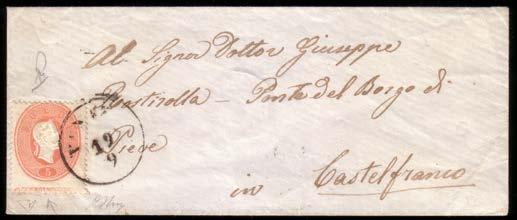 Al Signor Dottor Giuseppe
Rostirolla – Ponte del Borgo di
Pieve
in Castelfranco
19
9
5